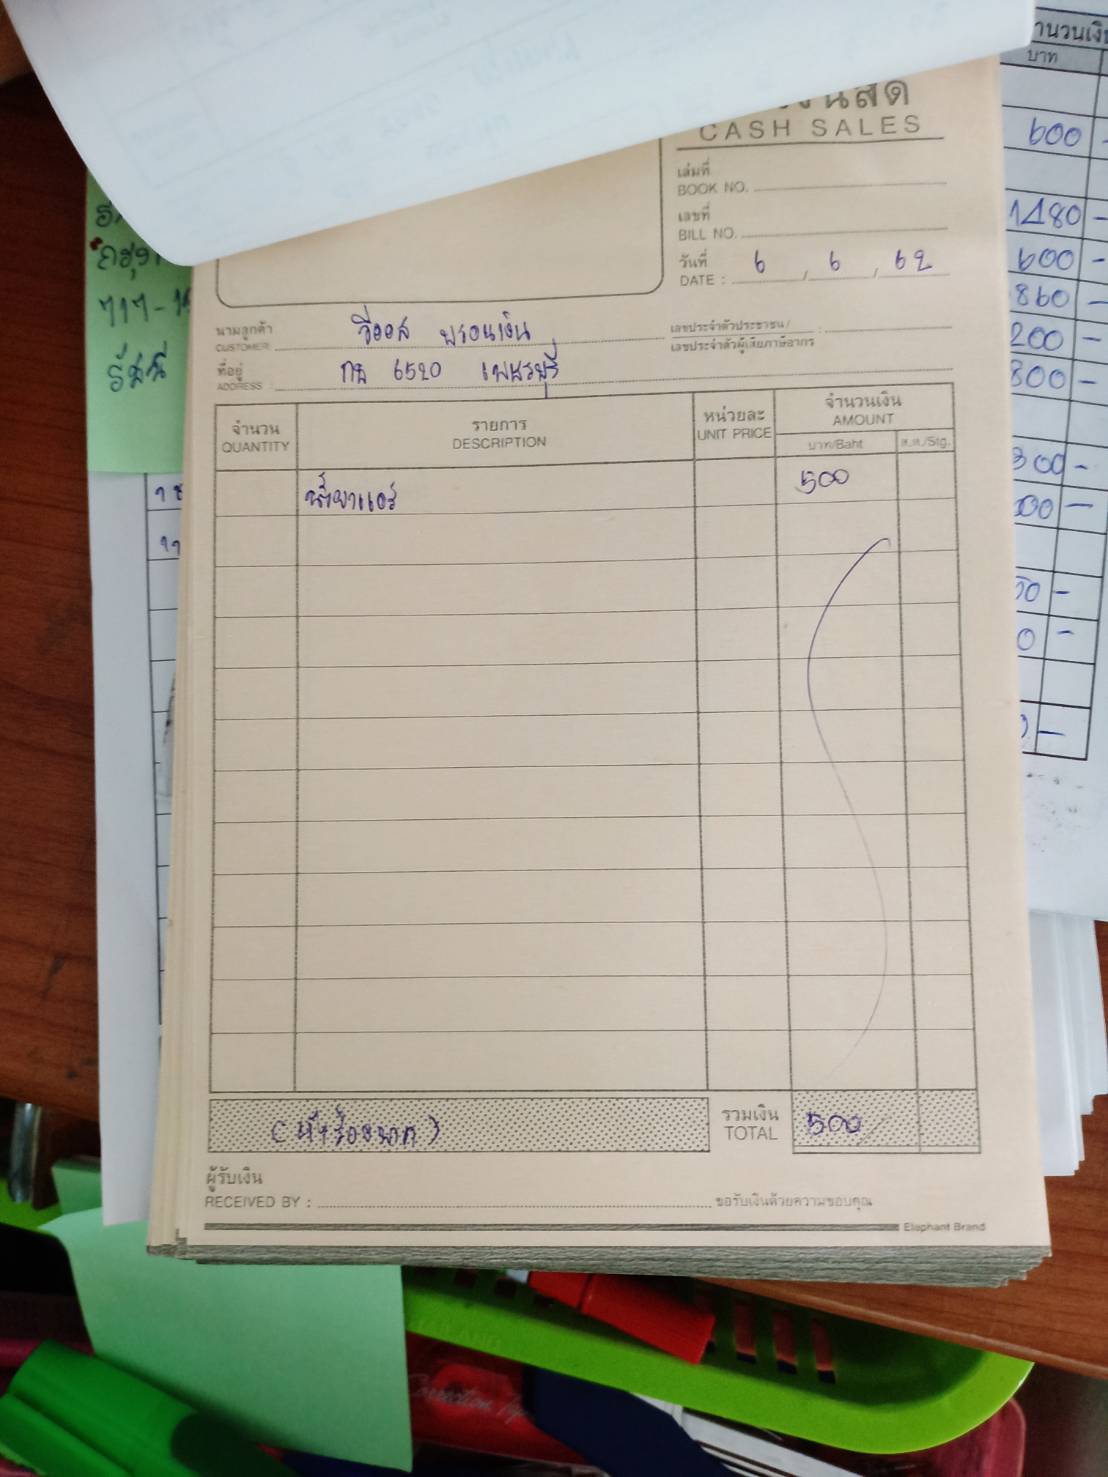 CASH SALES
เล่มที่
BOOK NO.
เลขที่
BILL NO.
วันที่
DATE : 6 / 6 / 62
นามลูกค้า
CUSTOMER
ที่อยู่ กธ 6520 เพชรบุรี
ADDRESS :
เลขประจำตัวประชาชน/
เลขประจำตัวผู้เสียภาษีอากร :
จำนวน รายการ หน่วยละ จำนวนเงิน
QUANTITY DESCRIPTION UNIT PRICE AMOUNT
บาท/Baht ส.ต./Stg.
น้ำยาแอร์ 500
(ห้าร้อยบาท) รวมเงิน 500
TOTAL
ผู้รับเงิน
RECEIVED BY : ขอรับเงินด้วยความขอบคุณ
Elephant Brand
จำนวนเงิน
บาท
600 -
1480 -
600 -
860 -
200 -
800 -
300 -
Correction